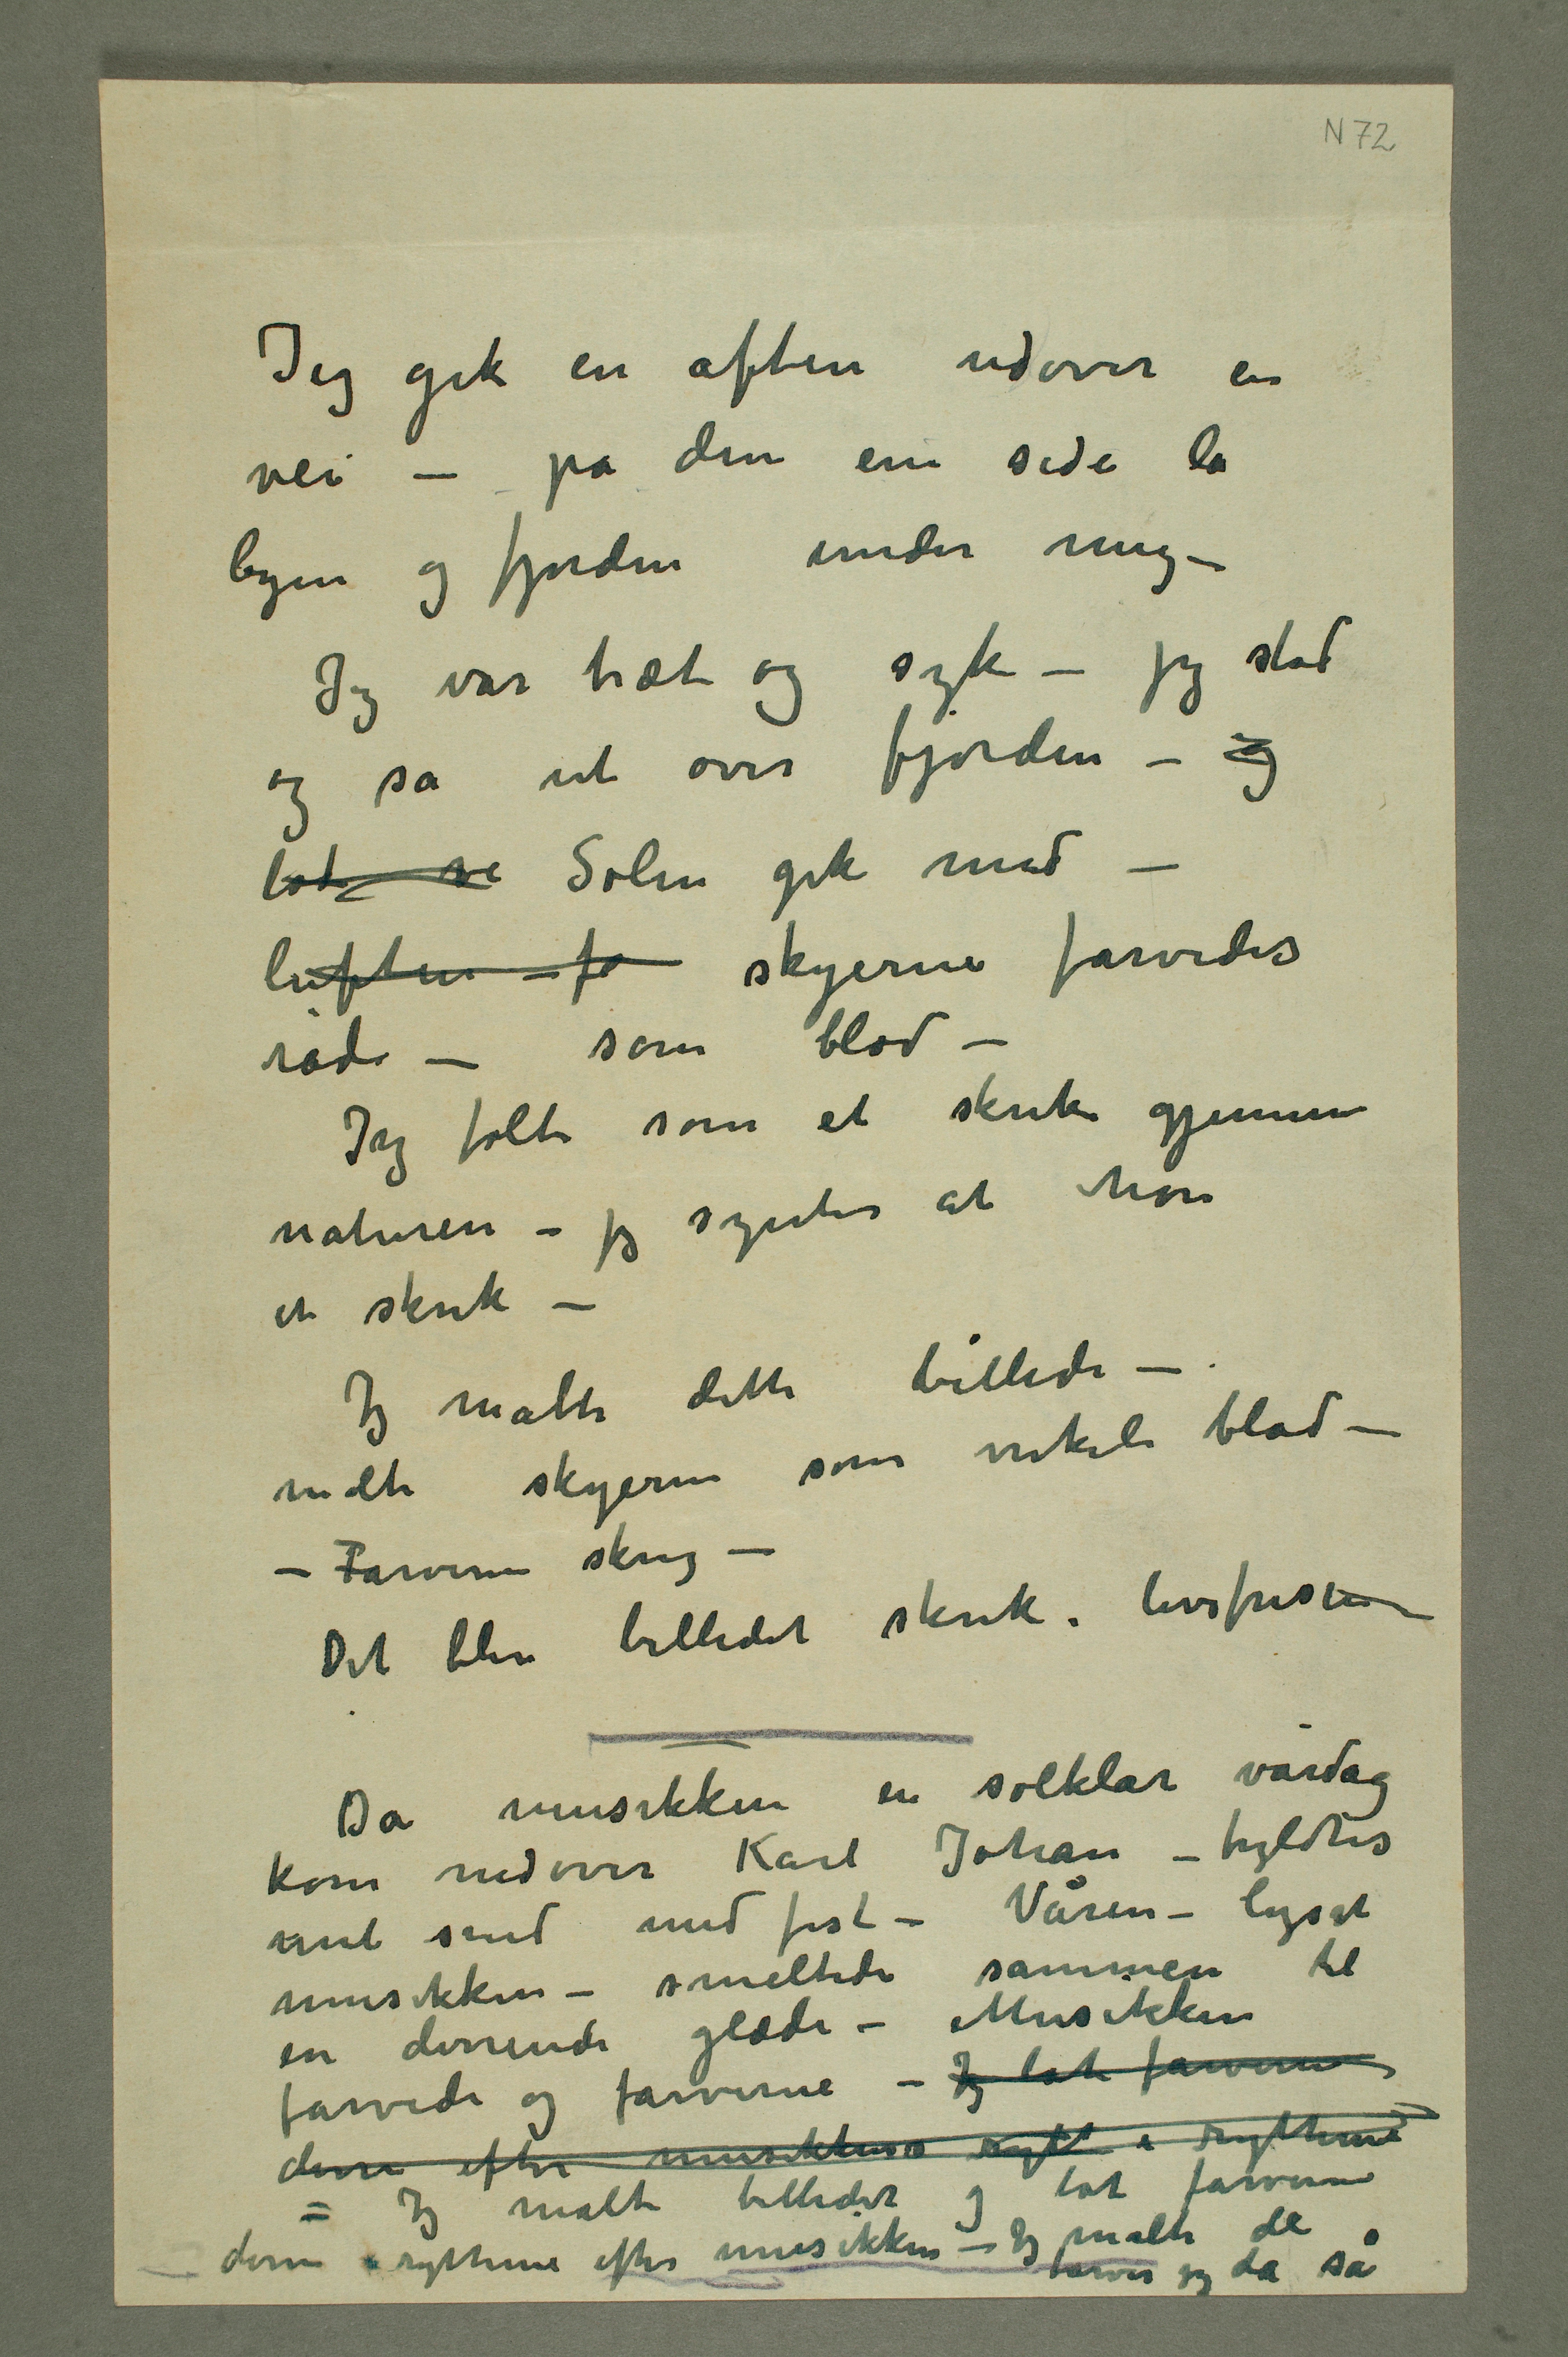 N 72
Jeg gik en aften udover en
vei – på den ene side lå
byen og fjorden under mig –
Jeg var træt og syk – jeg stod
og så ut over fjorden – og
lot se Solen gik ned –
luften – fa skyerne farvedes
røde – som blod –
Jeg følte som et skrik gjennem
naturen – jeg syntes at høre
et skrik –
Jeg malte dette billede –
malte skyerne som virkeli blod –
– Farverne skreg –
Det blev billedet skrik i livsfrisen –
Da musikken en solklar vårdag
kom nedover Karl Johan – fyldtes
mit sind med fest – Våren – lyset
musikken – smeltede sammen til
en dirrende glæde – Musikken
farvede og farverne – Jeg lot farverne
dirre efter musikkens rytt i rythme
= Jeg malte billedet og lot farverne
dirre i rythme efter musikken – Jeg malte de
farver jeg da så